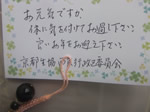 お元気ですか
体に気を付けてお過し下さい
良いお年をお迎え下さい
京都生協 行政区委員会